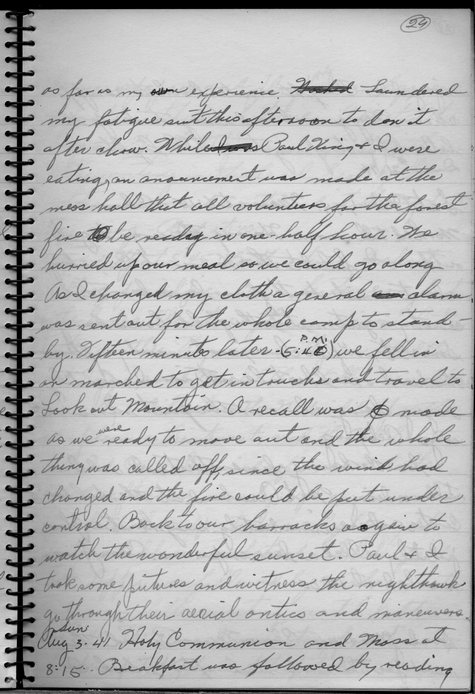 29
as far as my own experience. Washed Laundered
my fatigue suit this afternoon to don it
after chow. While I was Paul King & I were
eating, an anouncement was made at the
mess hall that all volunteers for the forest
fire to be ready in one half hour. We
hurried up our meal so we could go along
As I changed my cloths a general alarm
was sent out for the whole camp to stand-
by. Fifteen minutes later - (5:40 P.M.) we fell in
an marched to get in trucks and travel to
Look out Mountain. A recall was made
as we were ready to move out and the whole
thing was called off since the wind had
changed and the fire could be put under
control. Back to our barracks again to
watch the wonderful sunset. Paul & I
took some pictures and witness the nighthawk
go through their aerial antics and maneuvers.
Sun
Aug 3-41 Holy Communion and Mass at
8:15. Breakfast was followed by reading